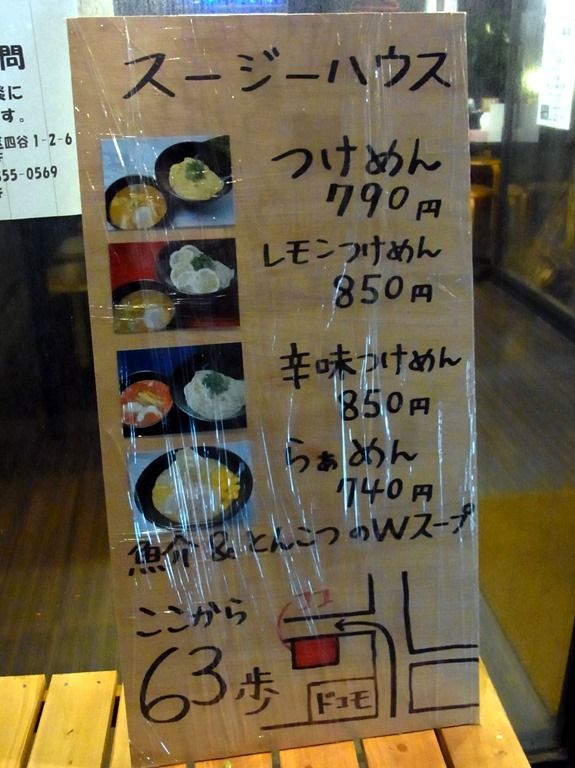 問
に
す。
四谷1-2-6
355-0569
スージーハウス
つけめん
790円
レモンつけめん
850円
辛味つけめん
850円
らぁめん
740円
魚介&とんこつのWスープ
ここから
63歩
ココ
ドコモ